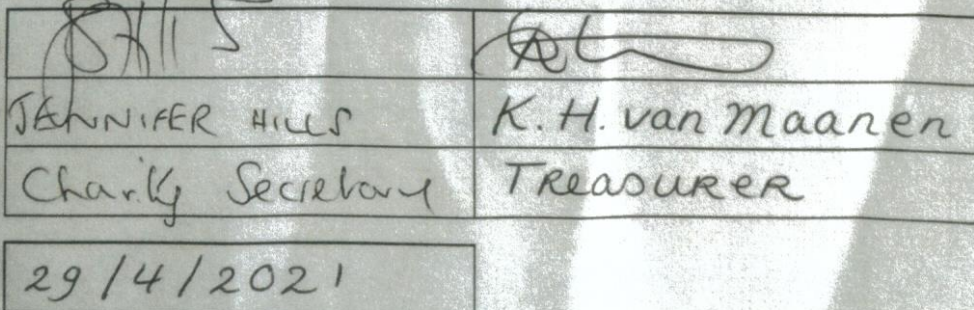 JENNIFER HILLS K.H. van Maanen
Charity Secretary TREASURER
29/4/2021